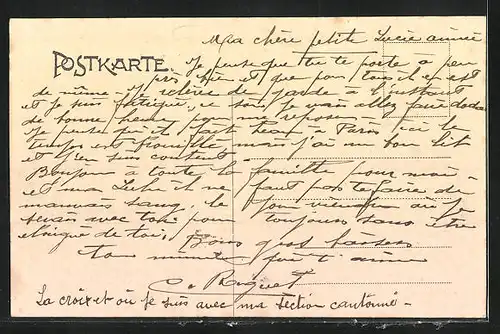 Ma chère petite Lucie aimée
POSTKARTE. Je pense que tu te porte à peu
près bien et que pour tous il en est
de même. Je de garde à l'instant
et je suis fatigué, ce soir je vais aller faire dodo
de bonne heure pour me reposer.
Je pense qu'il fait beau à Paris ici le
temps est mais j'ai un bon lit
et j'en suis content.
Bonjour à toute la famille pour moi
et ma Lucie il ne faut pas te faire de
mauvais sang, le jour viendra où je
serais avec toi pour toujours sans être
éloigné de toi, Bons gros baisers
ton qui t'aime
La croix et où je suis avec ma section cantonné